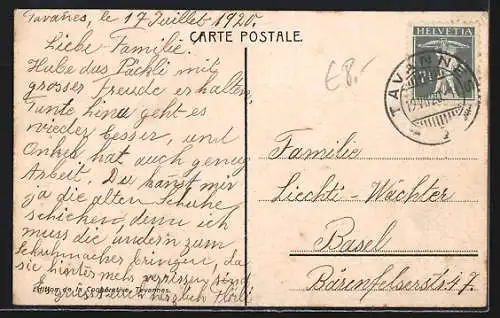 Tavanes, le 17 Juillet 1920.
CARTE POSTALE.
Liebe Familie.
Habe das Päckli mit
grosser Freude erhalten,
Tante Lina geht es
wieder besser, und
Onkel hat auch genug
Arbeit. Du kanst mir
ja die alten Schuhe
schicken, denn ich
muss die andern zum
Schuhmacher bringen, da
sie hinters mehr verrissen sind
Es grüsst euch herzlich
Edition de la Coopérative, Tavannes.
£8.-
HELVETIA
TAVANNES
Familie
Liechti-Wächter
Basel
Bärenfelserstr 47.